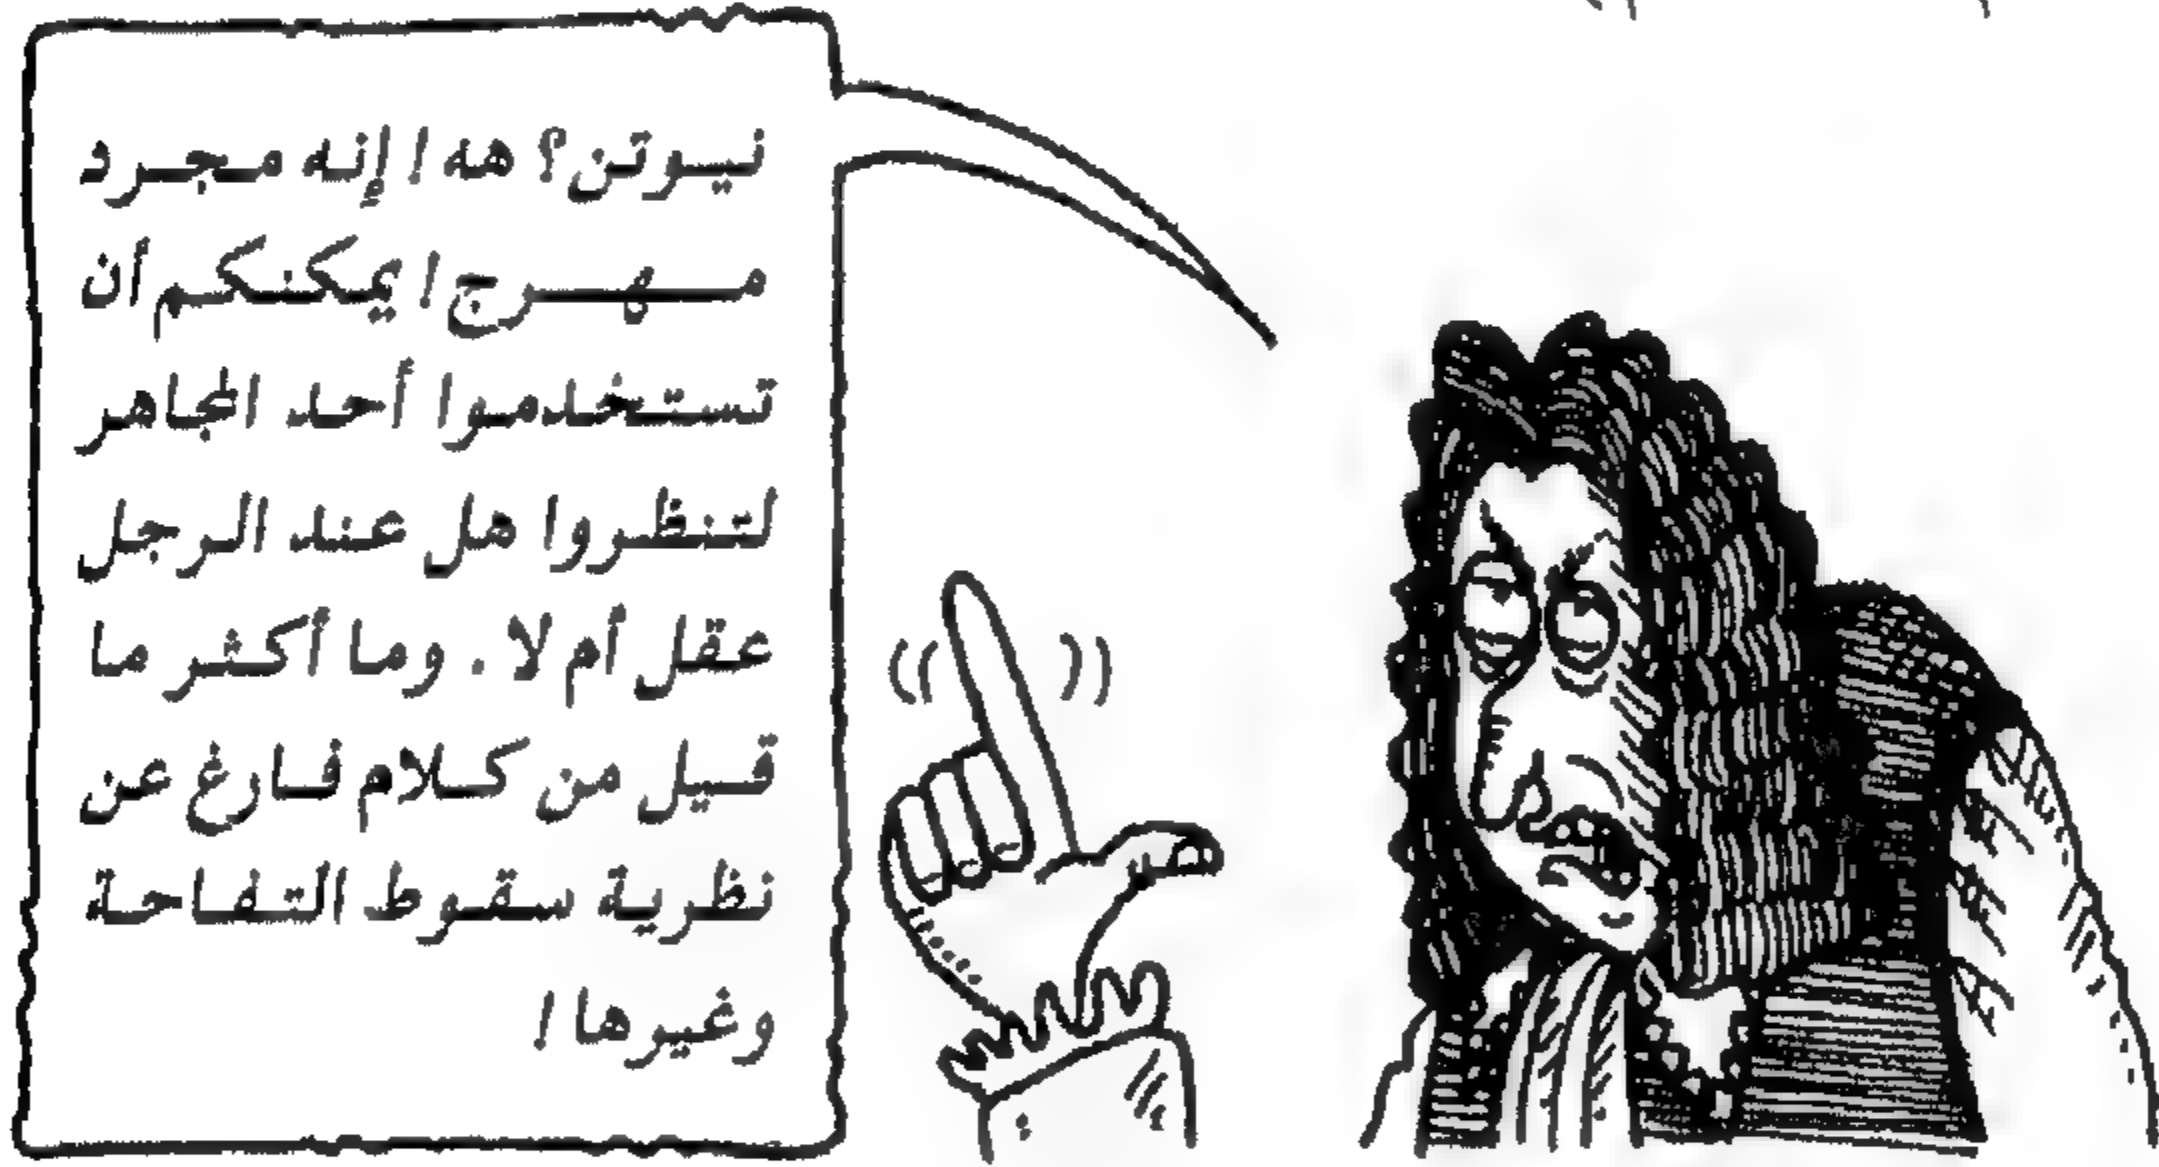 نيوتن؟ هه! إنه مجرد
مهرج! يمكنكم أن
تستخدموا أحد المجاهر
لتنظروا هل عند الرجل
عقل أم لا. وما أكثر ما
قيل من كلام فارغ عن
نظرية سقوط التفاحة
وغيرها!